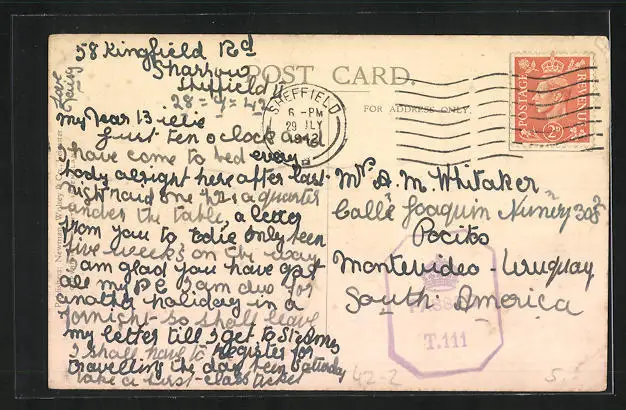 58 Kingfield Rd
Sharrow
Sheffield 11
28=7=42
Love
Daisy
my Dear Billie
Just ten o clock and
I have come to bed every
body alright here after last
night raid one hr & a quarter
under the table, a letter
from you to Edie only been
five weeks on the way
I am glad you have got
all my P.C I am due for
another holiday in a
fortnight so shall leave
my letter till I get to St Annes
I shall have to register for
travelling the day been Saturday
take a first-class ticket
POST CARD.
FOR ADDRESS ONLY.
SHEFFIELD
6-PM
29 JLY
1942
POSTAGE
REVENUE
2D
Mrs A. M Whitaker
Calle Joaquin Nunez 308
Pocitos
Montevideo - Uruguay
South America
PASSED
T.111
42-2
5.